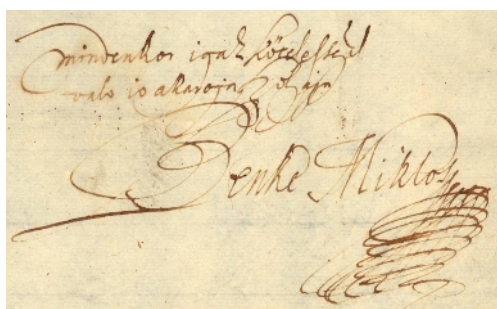 mindenkor igaz kötelességel
valo io akaroja
Benke Miklos